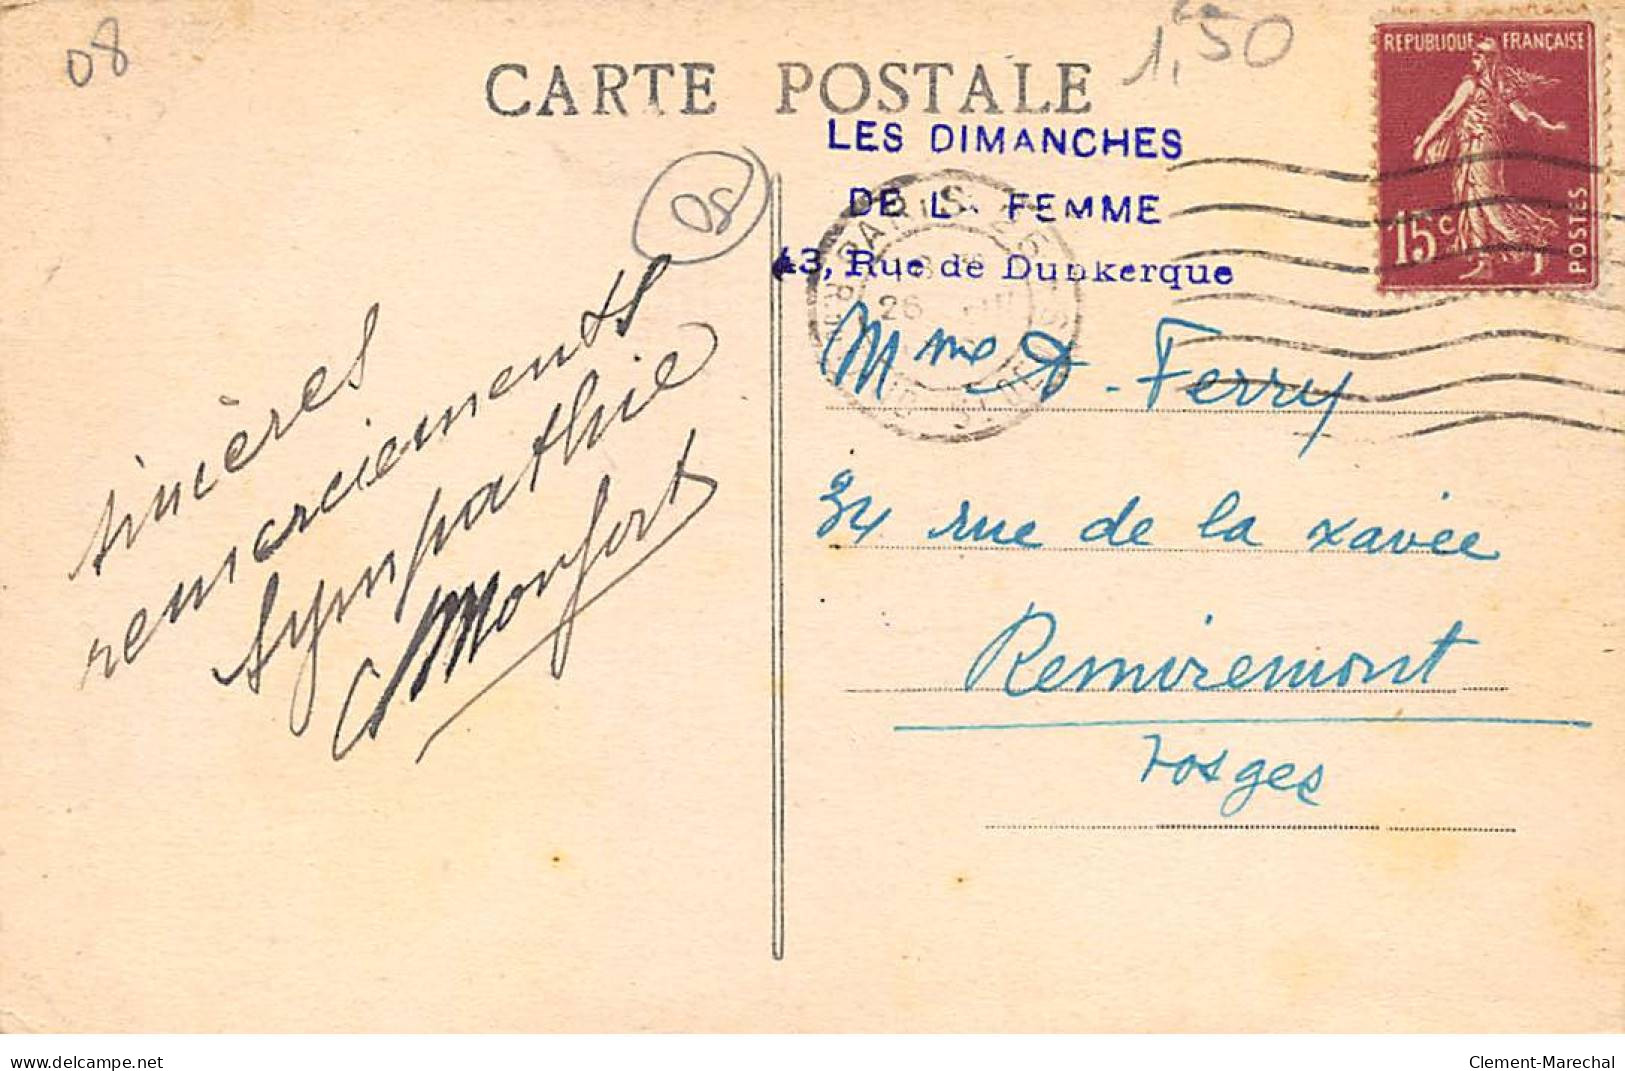 08
1,50
CARTE POSTALE
REPUBLIQUE FRANÇAISE
15c
POSTES
LES DIMANCHES
DE L FEMME
43, Rue de Dunkerque
PARIS
26
08
sincères
remerciements
sympathie
Monfort
Mme D. Ferry
34 rue de la xavée
Remiremont
Vosges
www.delcampe.net
Clement-Marechal